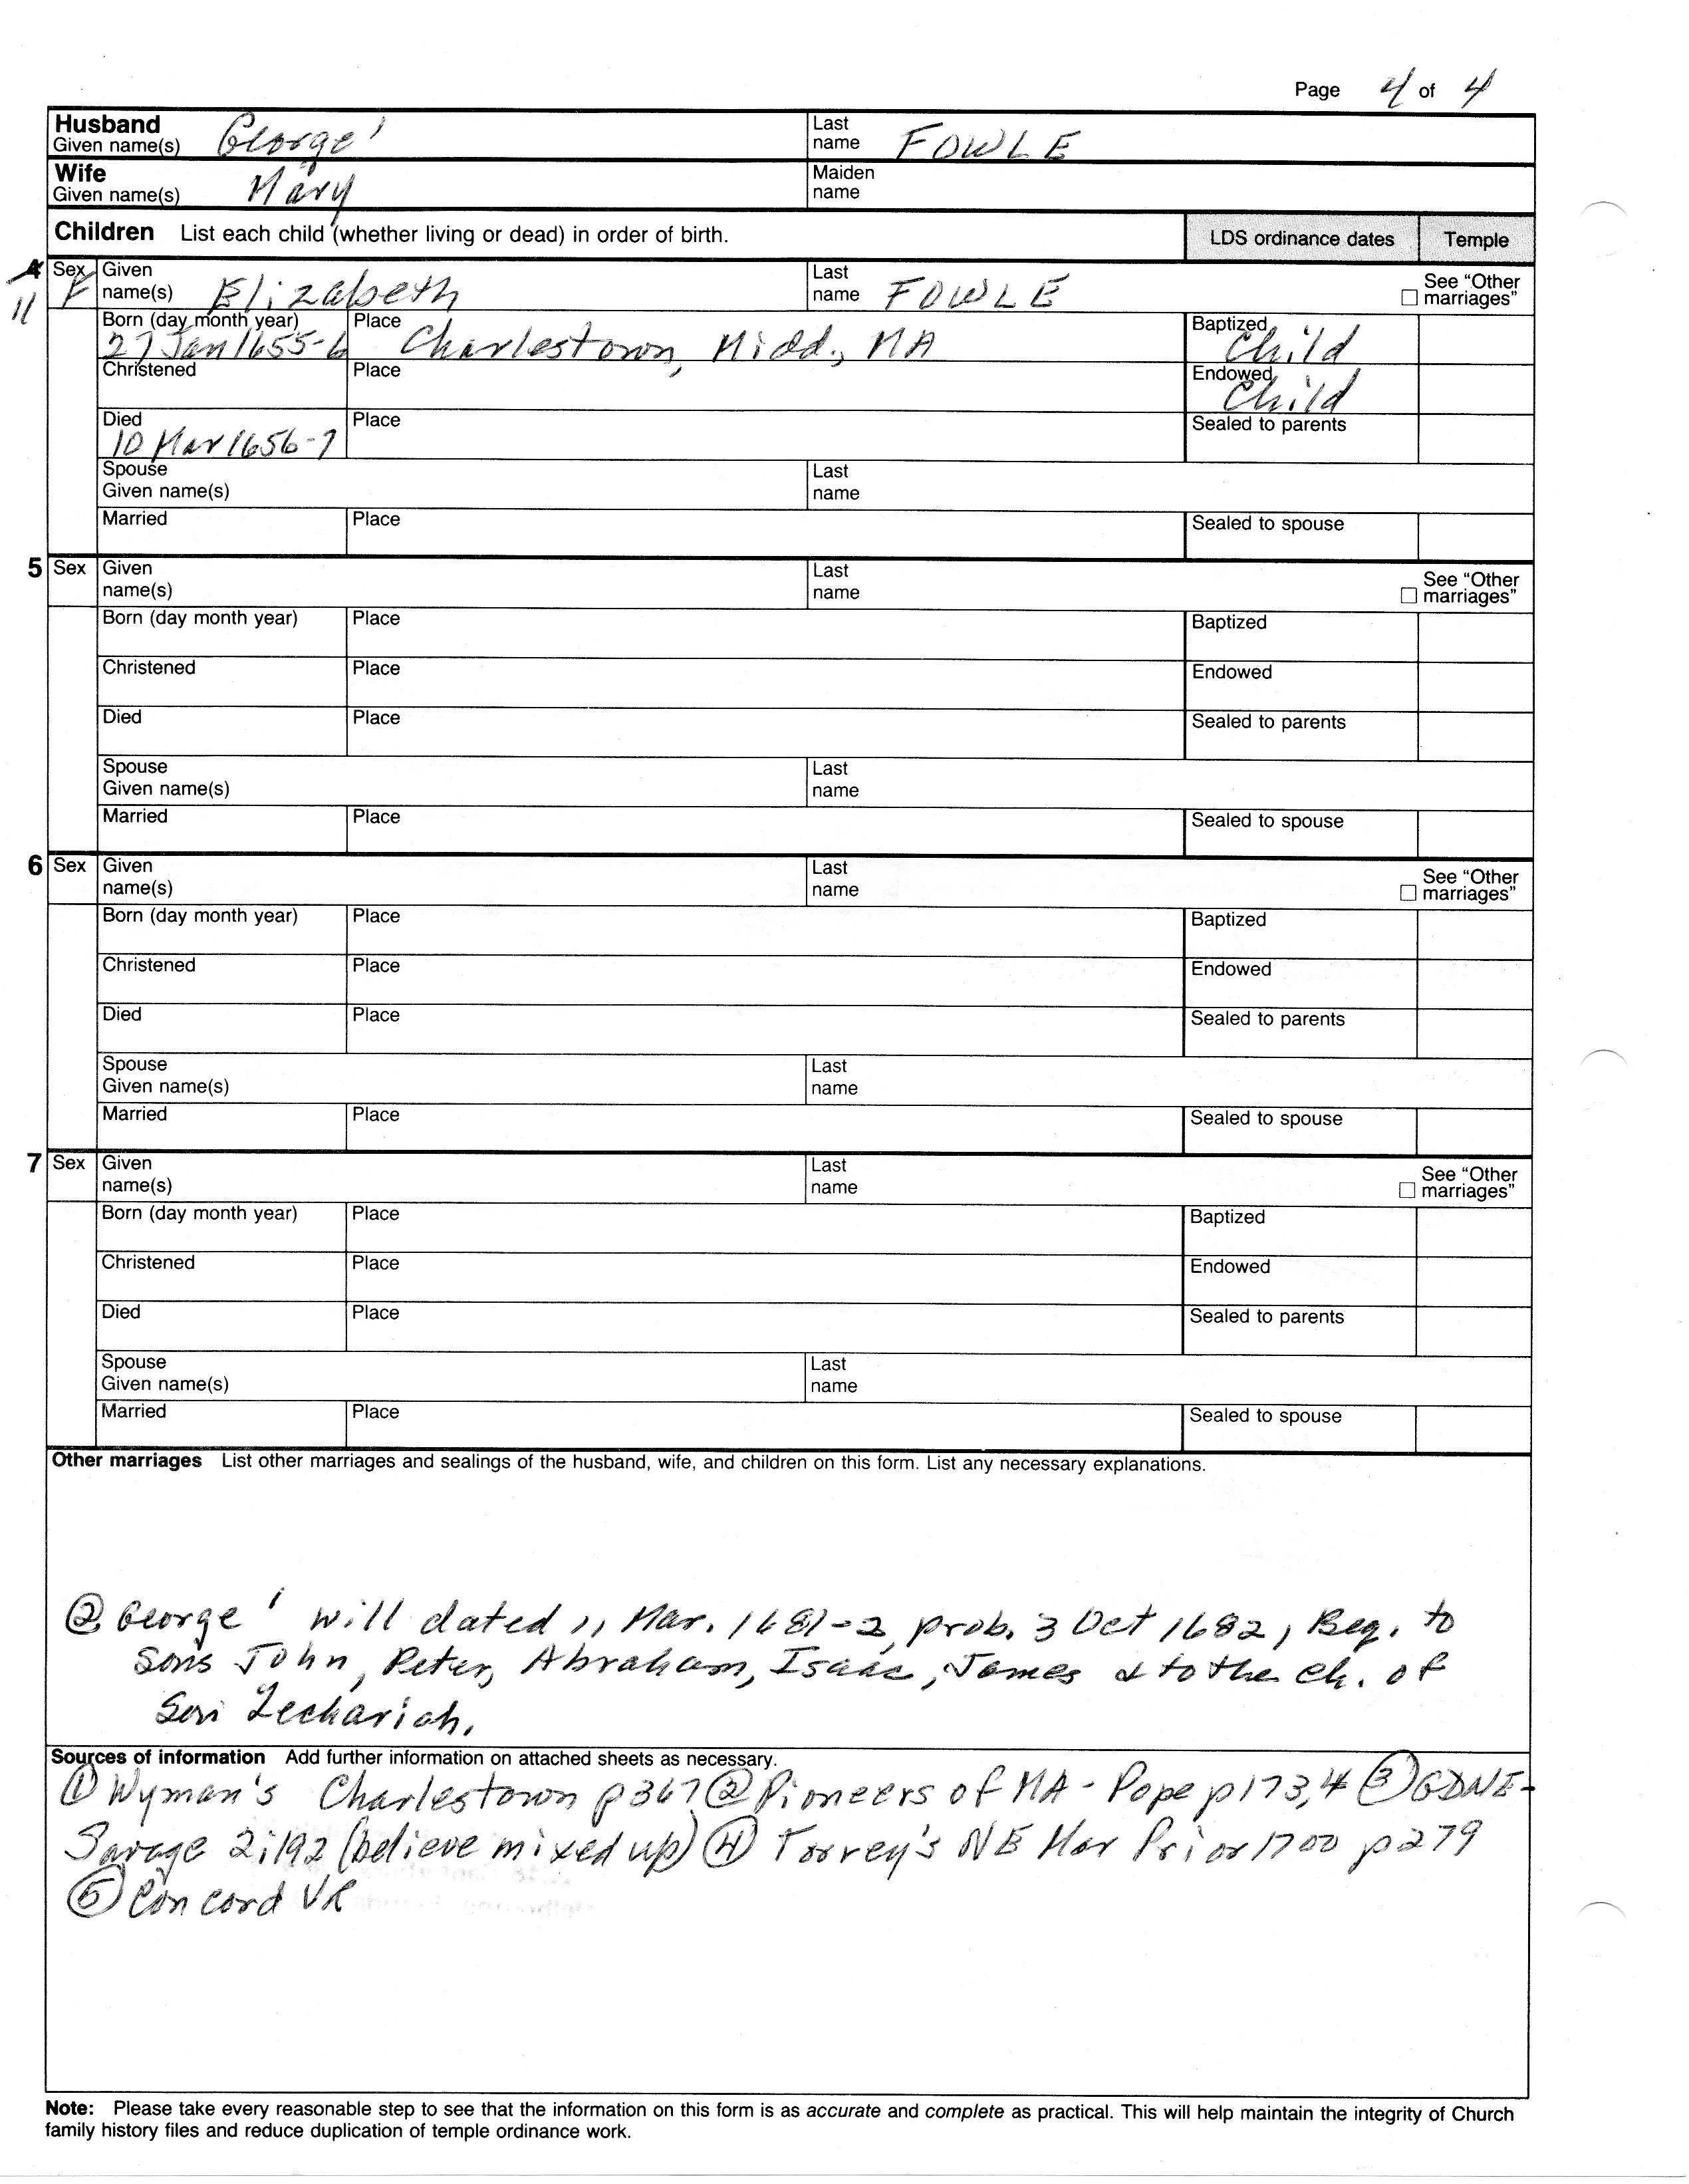 Page 4 of 4
Husband Given name(s) George¹ Last name FOWLE
Wife Given name(s) Mary Maiden name
Children List each child (whether living or dead) in order of birth. LDS ordinance dates Temple
11 Sex F Given name(s) Elizabeth Last name FOWLE See "Other marriages"
Born (day month year) 27 Jan 1655-6 Place Charlestown, Midd., MA Baptized Child
Christened Place Endowed Child
Died 10 Mar 1656-7 Place Sealed to parents
Spouse Given name(s) Last name
Married Place Sealed to spouse
5 Sex Given name(s) Last name See "Other marriages"
Born (day month year) Place Baptized
Christened Place Endowed
Died Place Sealed to parents
Spouse Given name(s) Last name
Married Place Sealed to spouse
6 Sex Given name(s) Last name See "Other marriages"
Born (day month year) Place Baptized
Christened Place Endowed
Died Place Sealed to parents
Spouse Given name(s) Last name
Married Place Sealed to spouse
7 Sex Given name(s) Last name See "Other marriages"
Born (day month year) Place Baptized
Christened Place Endowed
Died Place Sealed to parents
Spouse Given name(s) Last name
Married Place Sealed to spouse
Other marriages List other marriages and sealings of the husband, wife, and children on this form. List any necessary explanations.
② George¹ will dated 11 Mar. 1681-2, prob. 3 Oct 1682, Beq. to
Sons John, Peter, Abraham, Isaac, James & to the ch. of
Son Zechariah.
Sources of information Add further information on attached sheets as necessary.
① Wyman's Charlestown p367 ② Pioneers of MA - Pope p173,4 ③ GDNE-
Savage 2:192 (believe mixed up) ④ Torrey's NE Mar Prior 1700 p279
⑤ Concord VR
Note: Please take every reasonable step to see that the information on this form is as accurate and complete as practical. This will help maintain the integrity of Church
family history files and reduce duplication of temple ordinance work.